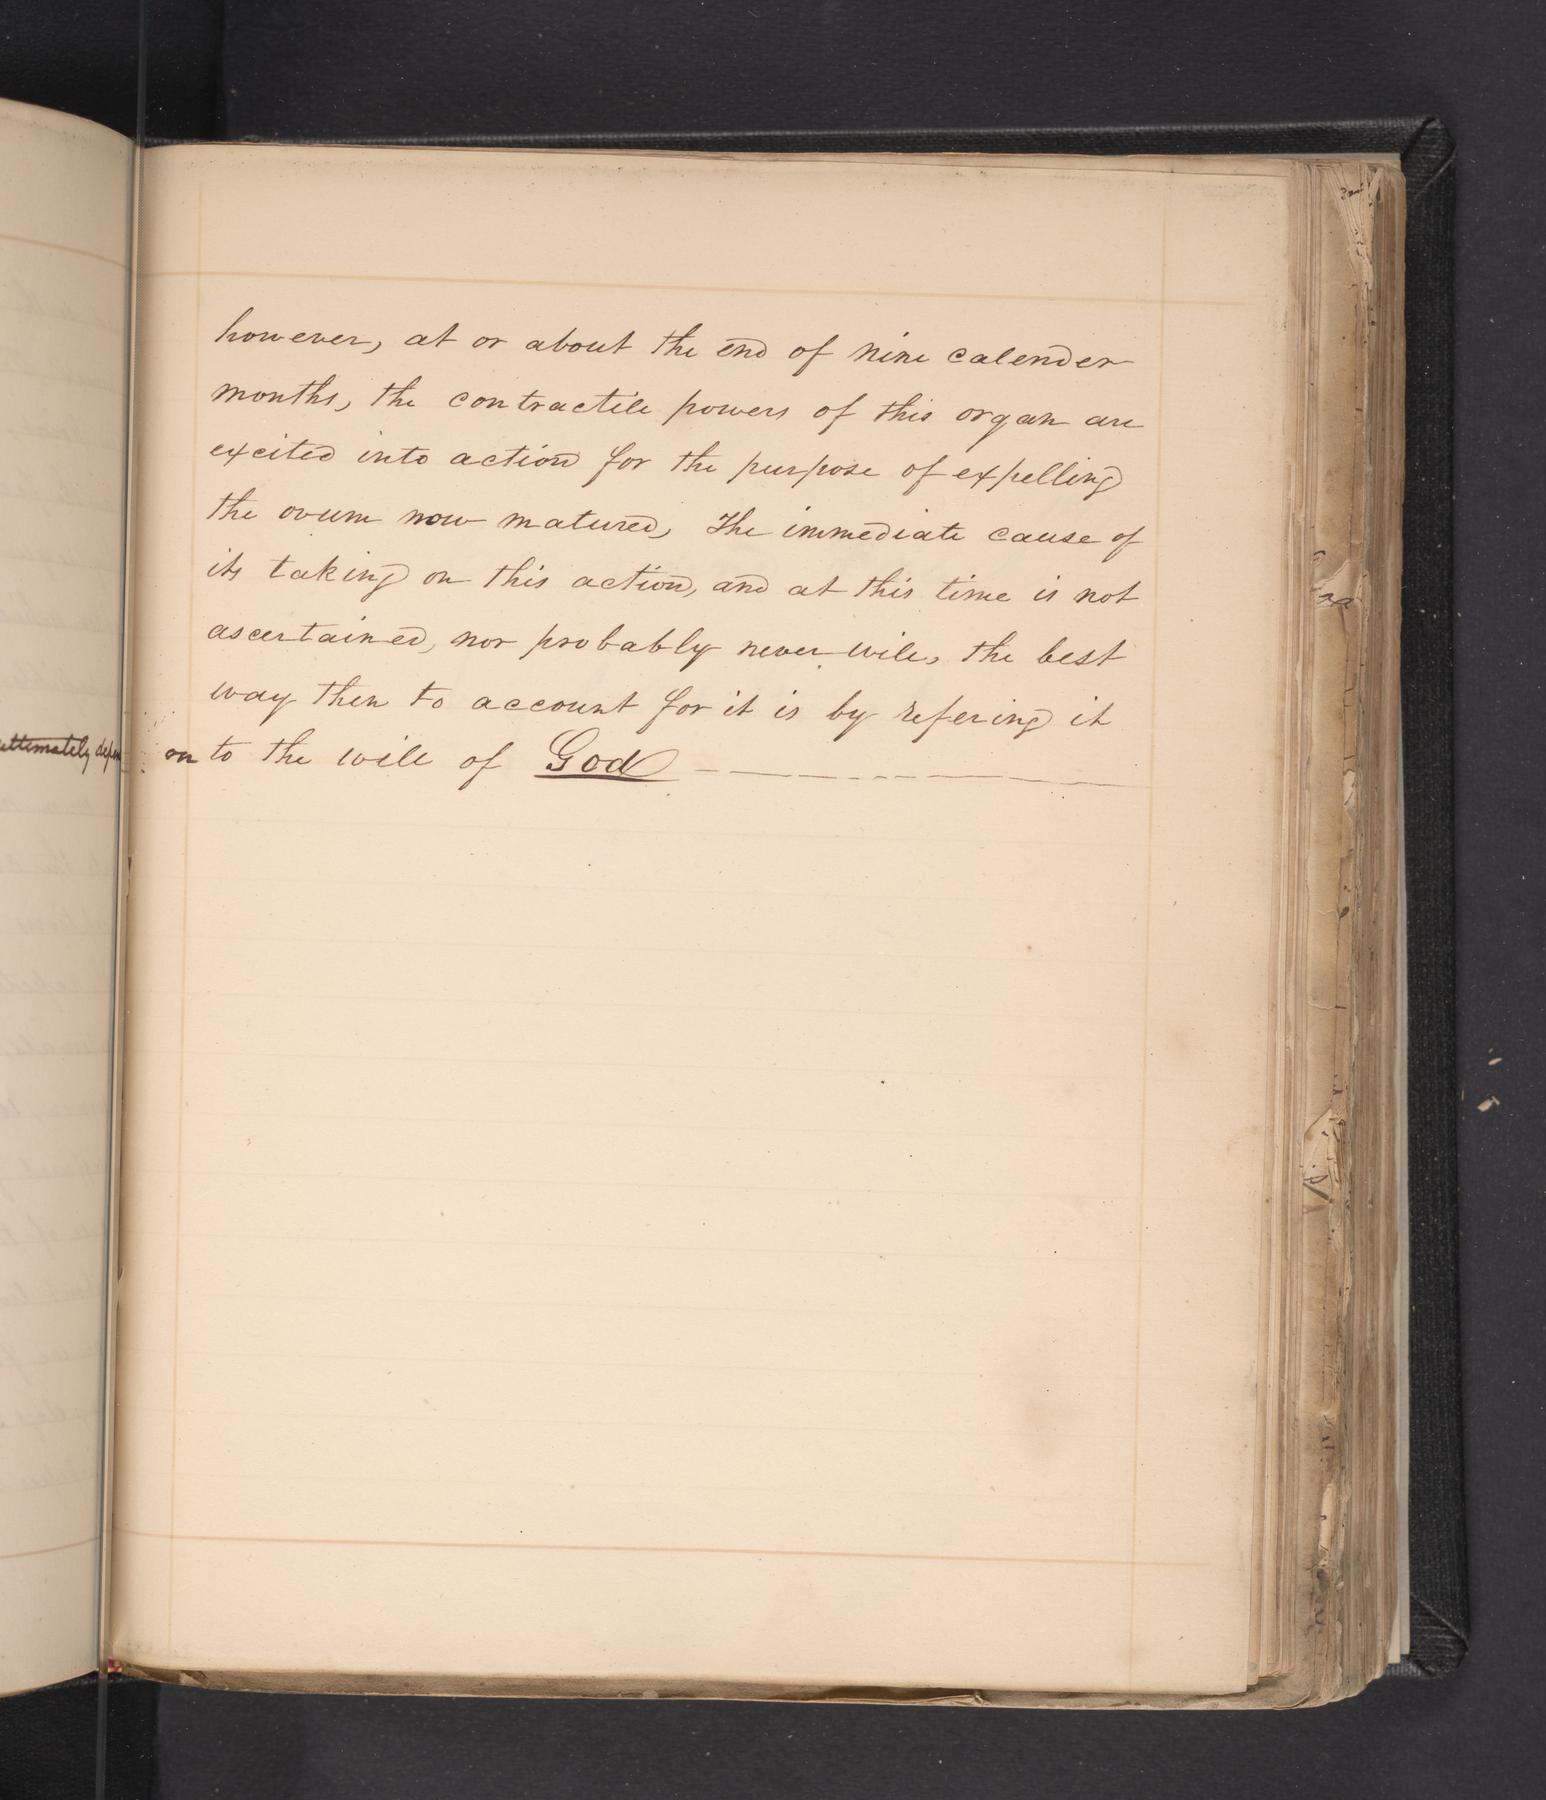 however, at or about the end of nine calender
months, the contractile powers of this organ are
excited into action for the purpose of expelling
the ovum now matured, The immediate cause of
its taking on this action, and at this time is not
ascertained, nor probably never will, the best
way then to account for it is by refering it
ultimately depen on to the will of God